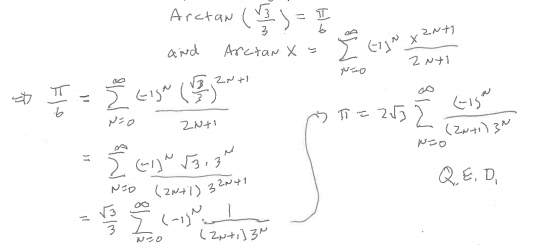 Arctan (√3/3) = π/6
and Arctan x = ∑_{N=0}^{∞} (-1)^N x^{2N+1}/(2N+1)
⇒ π/6 = ∑_{N=0}^{∞} (-1)^N (√3/3)^{2N+1}/(2N+1)
= ∑_{N=0}^{∞} (-1)^N √3 · 3^N/((2N+1) 3^{2N+1})
= √3/3 ∑_{N=0}^{∞} (-1)^N · 1/((2N+1) 3^N)
→ π = 2√3 ∑_{N=0}^{∞} (-1)^N/((2N+1) 3^N)
Q.E.D.